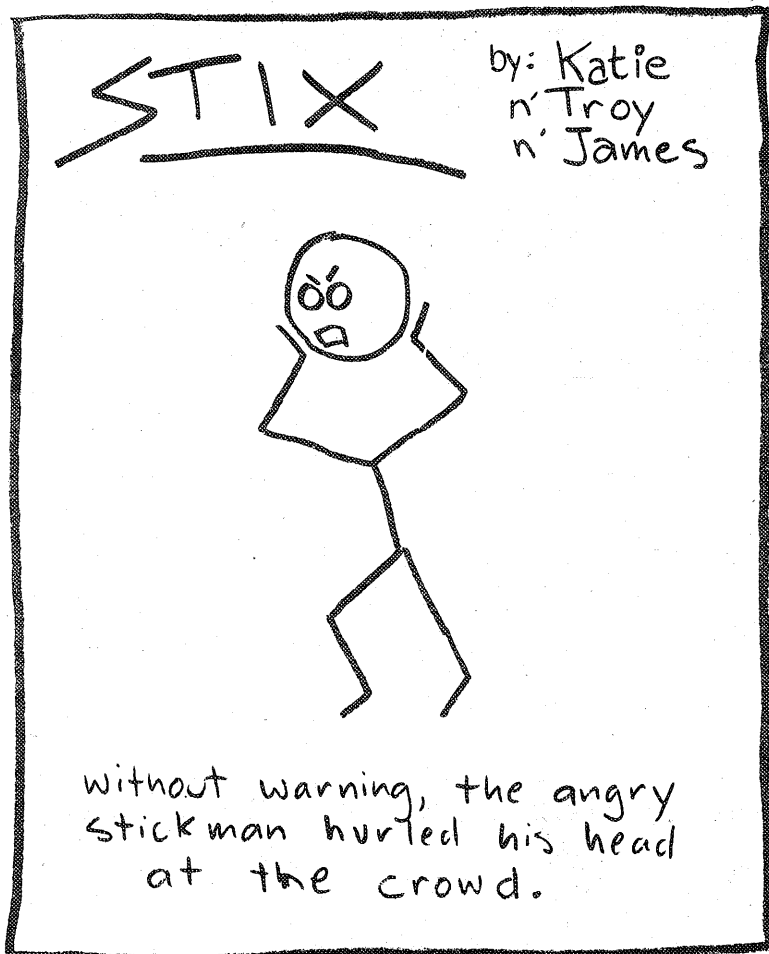 STIX
by: Katie
n' Troy
n' James
without warning, the angry
stickman hurled his head
at the crowd.